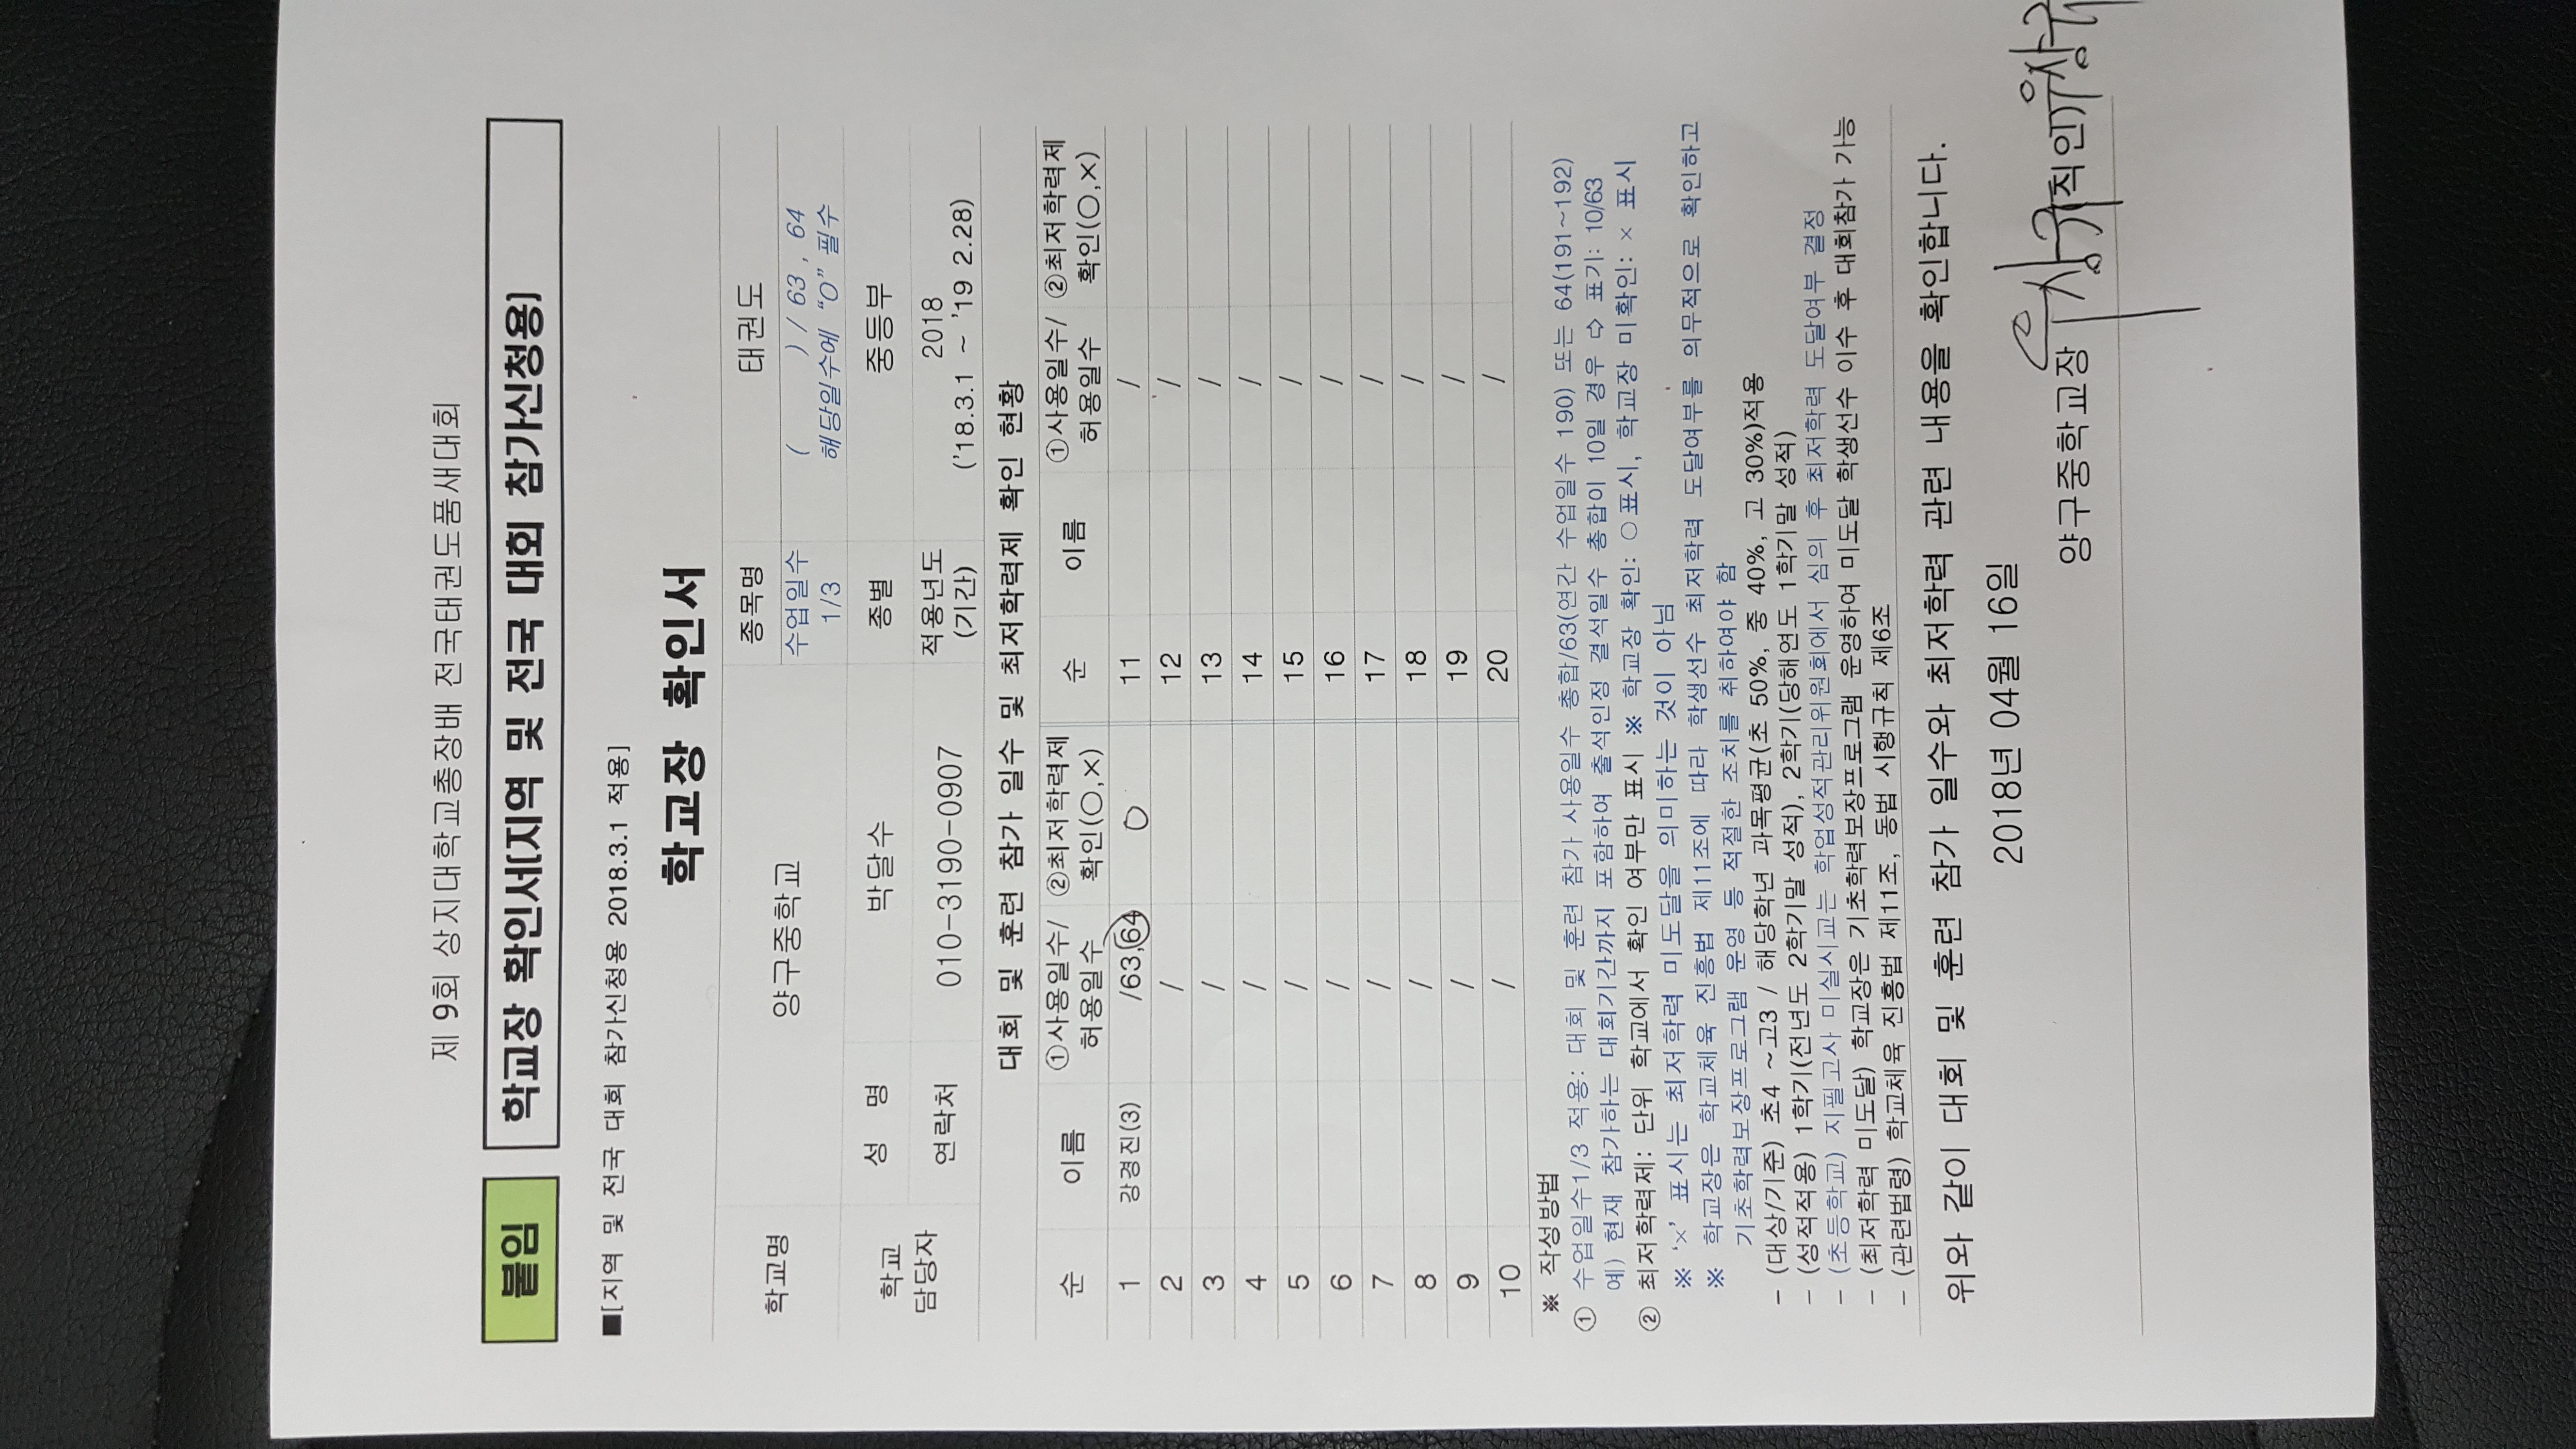 제 9회 상지대학교총장배 전국태권도품새대회
붙임 학교장 확인서[지역 및 전국 대회 참가신청용]
■[지역 및 전국 대회 참가신청용 2018.3.1 적용]
학교장 확인서
학교명 양구중학교 종목명 태권도
수업일수 1/3 ( ) / 63 , 64
해당일수에 “O” 필수
학교 담당자 성 명 박달수 종별 중등부
연락처 010-3190-0907 적용년도 (기간) 2018
('18.3.1 ~ '19 2.28)
대회 및 훈련 참가 일수 및 최저학력제 확인 현황
순 이름 ①사용일수/허용일수 ②최저학력제 확인(○,×) 순 이름 ①사용일수/허용일수 ②최저학력제 확인(○,×)
1 강경진(3) /63,64 O 11 /
2 / 12 /
3 / 13 /
4 / 14 /
5 / 15 /
6 / 16 /
7 / 17 /
8 / 18 /
9 / 19 /
10 / 20 /
※ 작성방법
① 수업일수1/3 적용: 대회 및 훈련 참가 사용일수 총합/63(연간 수업일수 190) 또는 64(191~192)
예) 현재 참가하는 대회기간까지 포함하여 출석인정 결석일수 총합이 10일 경우 ⇨ 표기: 10/63
② 최저학력제: 단위 학교에서 확인 여부만 표시 ※ 학교장 확인: ○표시, 학교장 미확인: × 표시
※ ‘×’ 표시는 최저학력 미도달을 의미하는 것이 아님
※ 학교장은 학교체육 진흥법 제11조에 따라 학생선수 최저학력 도달여부를 의무적으로 확인하고
기초학력보장프로그램 운영 등 적절한 조치를 취하여야 함
- (대상/기준) 초4 ~고3 / 해당학년 과목평균(초 50%, 중 40%, 고 30%)적용
- (성적적용) 1학기(전년도 2학기말 성적), 2학기(당해연도 1학기말 성적)
- (초등학교) 지필고사 미실시교는 학업성적관리위원회에서 심의 후 최저학력 도달여부 결정
- (최저학력 미도달) 학교장은 기초학력보장프로그램 운영하여 미도달 학생선수 이수 후 대회참가 가능
- (관련법령) 학교체육 진흥법 제11조, 동법 시행규칙 제6조
위와 같이 대회 및 훈련 참가 일수와 최저학력 관련 내용을 확인합니다.
2018년 04월 16일
양구중학교장 (직인)